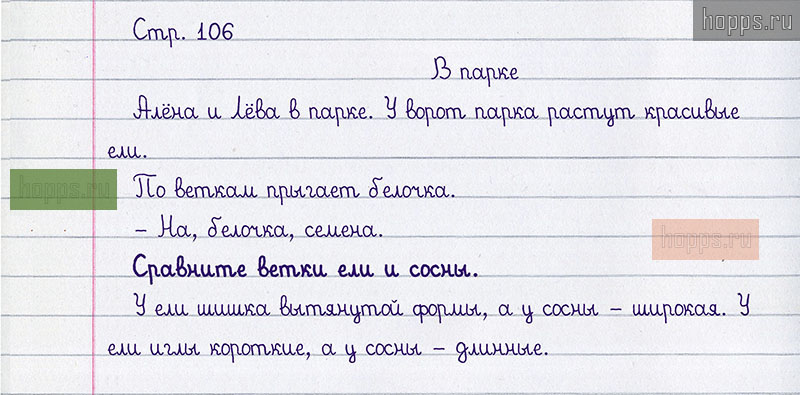 hopps.ru
Стр. 106
В парке
Алёна и Лёва в парке. У ворот парка растут красивые
ели.
hopps.ru
По веткам прыгает белочка.
– На, белочка, семена.
hopps.ru
Сравните ветки ели и сосны.
У ели шишка вытянутой формы, а у сосны – широкая. У
ели иглы короткие, а у сосны – длинные.